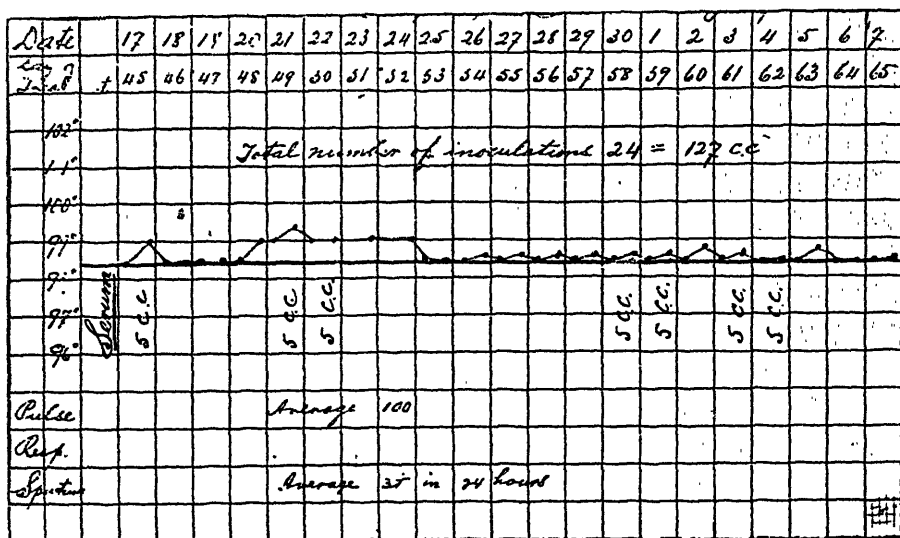 Date 17 18 19 20 21 22 23 24 25 26 27 28 29 30 1 2 3 4 5 6 7
45 46 47 48 49 50 51 52 53 54 55 56 57 58 59 60 61 62 63 64 65
102°
Total number of inoculations 24 = 127 c.c
101°
100°
99°
98°
97°
96°
Serum 5 c.c 5 c.c 5 c.c. 5 c.c. 5 c.c. 5 c.c. 5 c.c.
Pulse Average 100
Resp.
Sputum Average in 24 hours